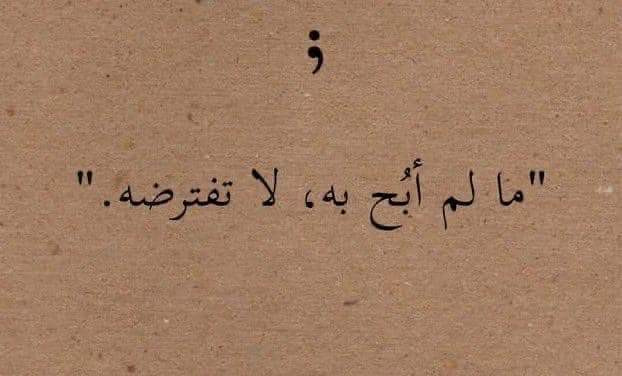 ؛
"ما لم أبُح به، لا تفترضه."